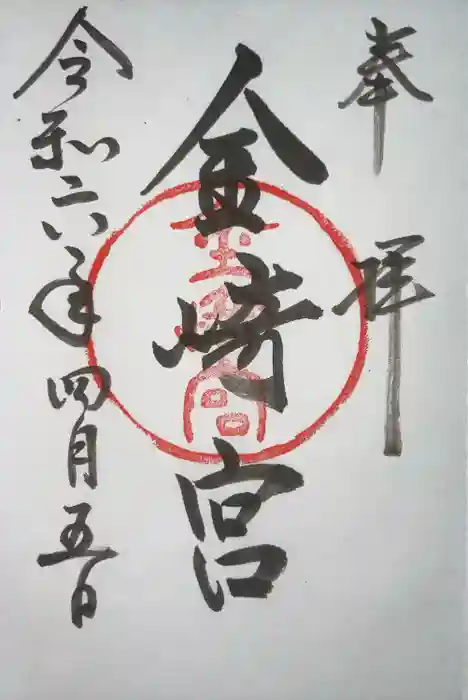 奉拝
金崎宮
金崎宮
令和六年四月五日